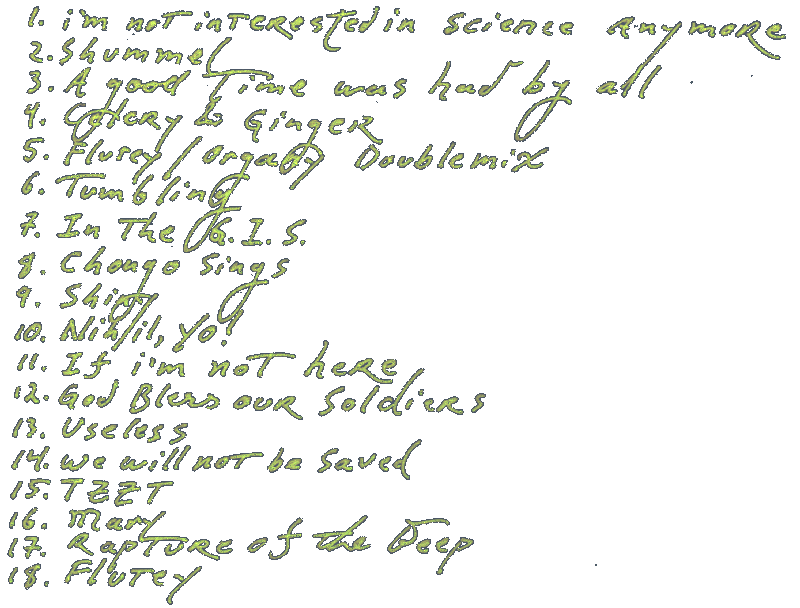 1. i'm not interested in Science Anymore
2. Shummel
3. A good Time was had by all
4. Celery & Ginger
5. Flutey / Organy Doublemix
6. Tumbling
7. In The G.I.S.
8. Chongo Sings
9. Shift
10. Nihil, Yo!
11. If i'm not here
12. God Bless our Soldiers
13. Useless
14. we will not be Saved
15. TZZT
16. Mary
17. Rapture of the Deep
18. Flutey